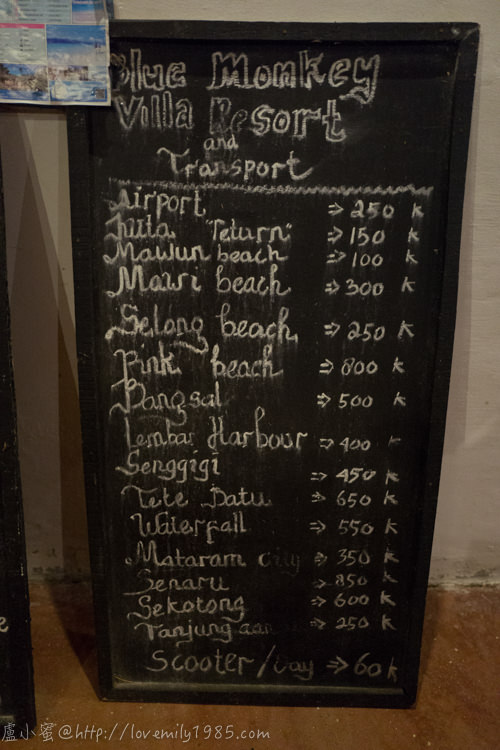 Blue Monkey
Villa Resort
and
Transport
Airport ⇒ 250 K
kuta "return" ⇒ 150 K
Mawun beach ⇒ 100 K
Mawi beach ⇒ 300 K
Selong beach ⇒ 250 K
Pink beach ⇒ 800 K
Bangsal ⇒ 500 K
Lembar Harbour ⇒ 400 K
Senggigi ⇒ 450 K
Tete Batu ⇒ 650 K
Waterfall ⇒ 550 K
Mataram city ⇒ 350 K
Senaru ⇒ 850 K
Sekotong ⇒ 600 K
Tanjung aan ⇒ 250 K
Scooter/Day ⇒ 60 K
盧小蜜@http://lovemily1985.com